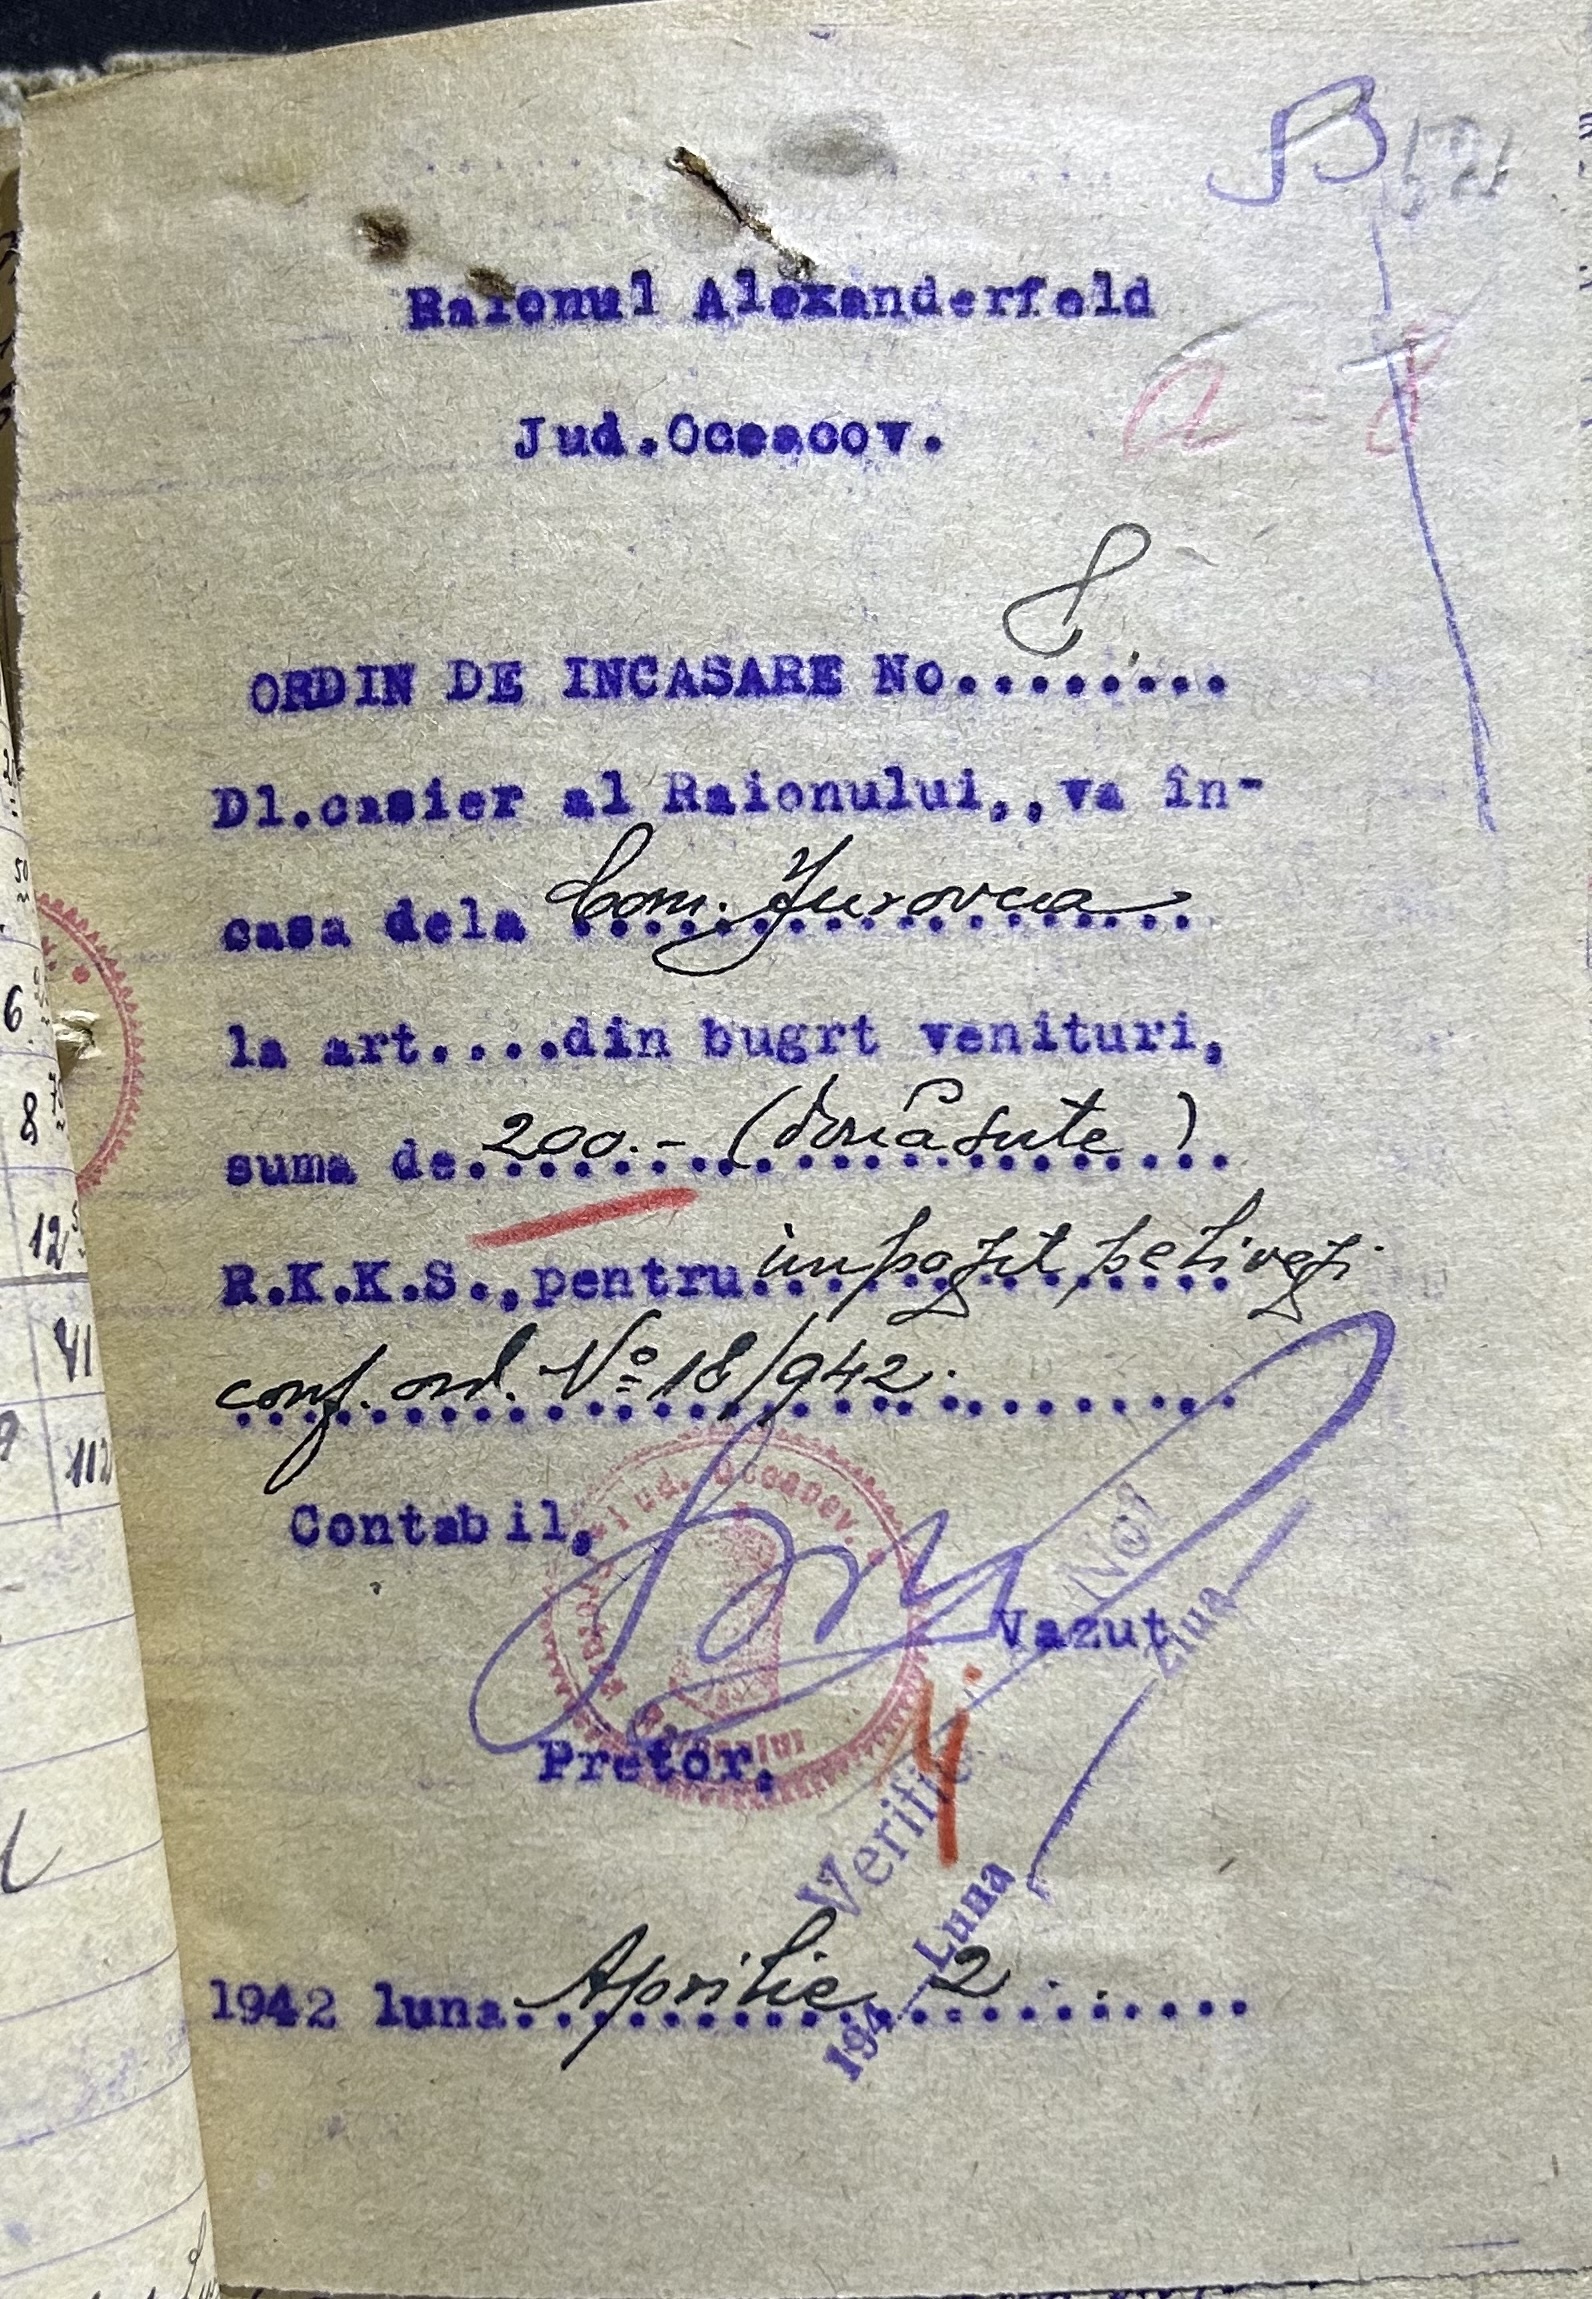 B
521
Raionul Alexanderfeld
a = 8
Jud.Oceacov.
8
ORDIN DE INCASARE No........
Dl.casier al Raionului,,va în-
casa dela Com. Jurovca
la art....din bugrt venituri,
suma de 200.- (două sute)
R.K.K.S.,pentru impozit pe livezi
conf. ord. No 18/942.
Contabil,
Jud. Oceacov.
Vazut
Pretor,
4
Verific
Not
194 Luna Ziua
1942 luna Aprilie 2
6
8
12
41
112